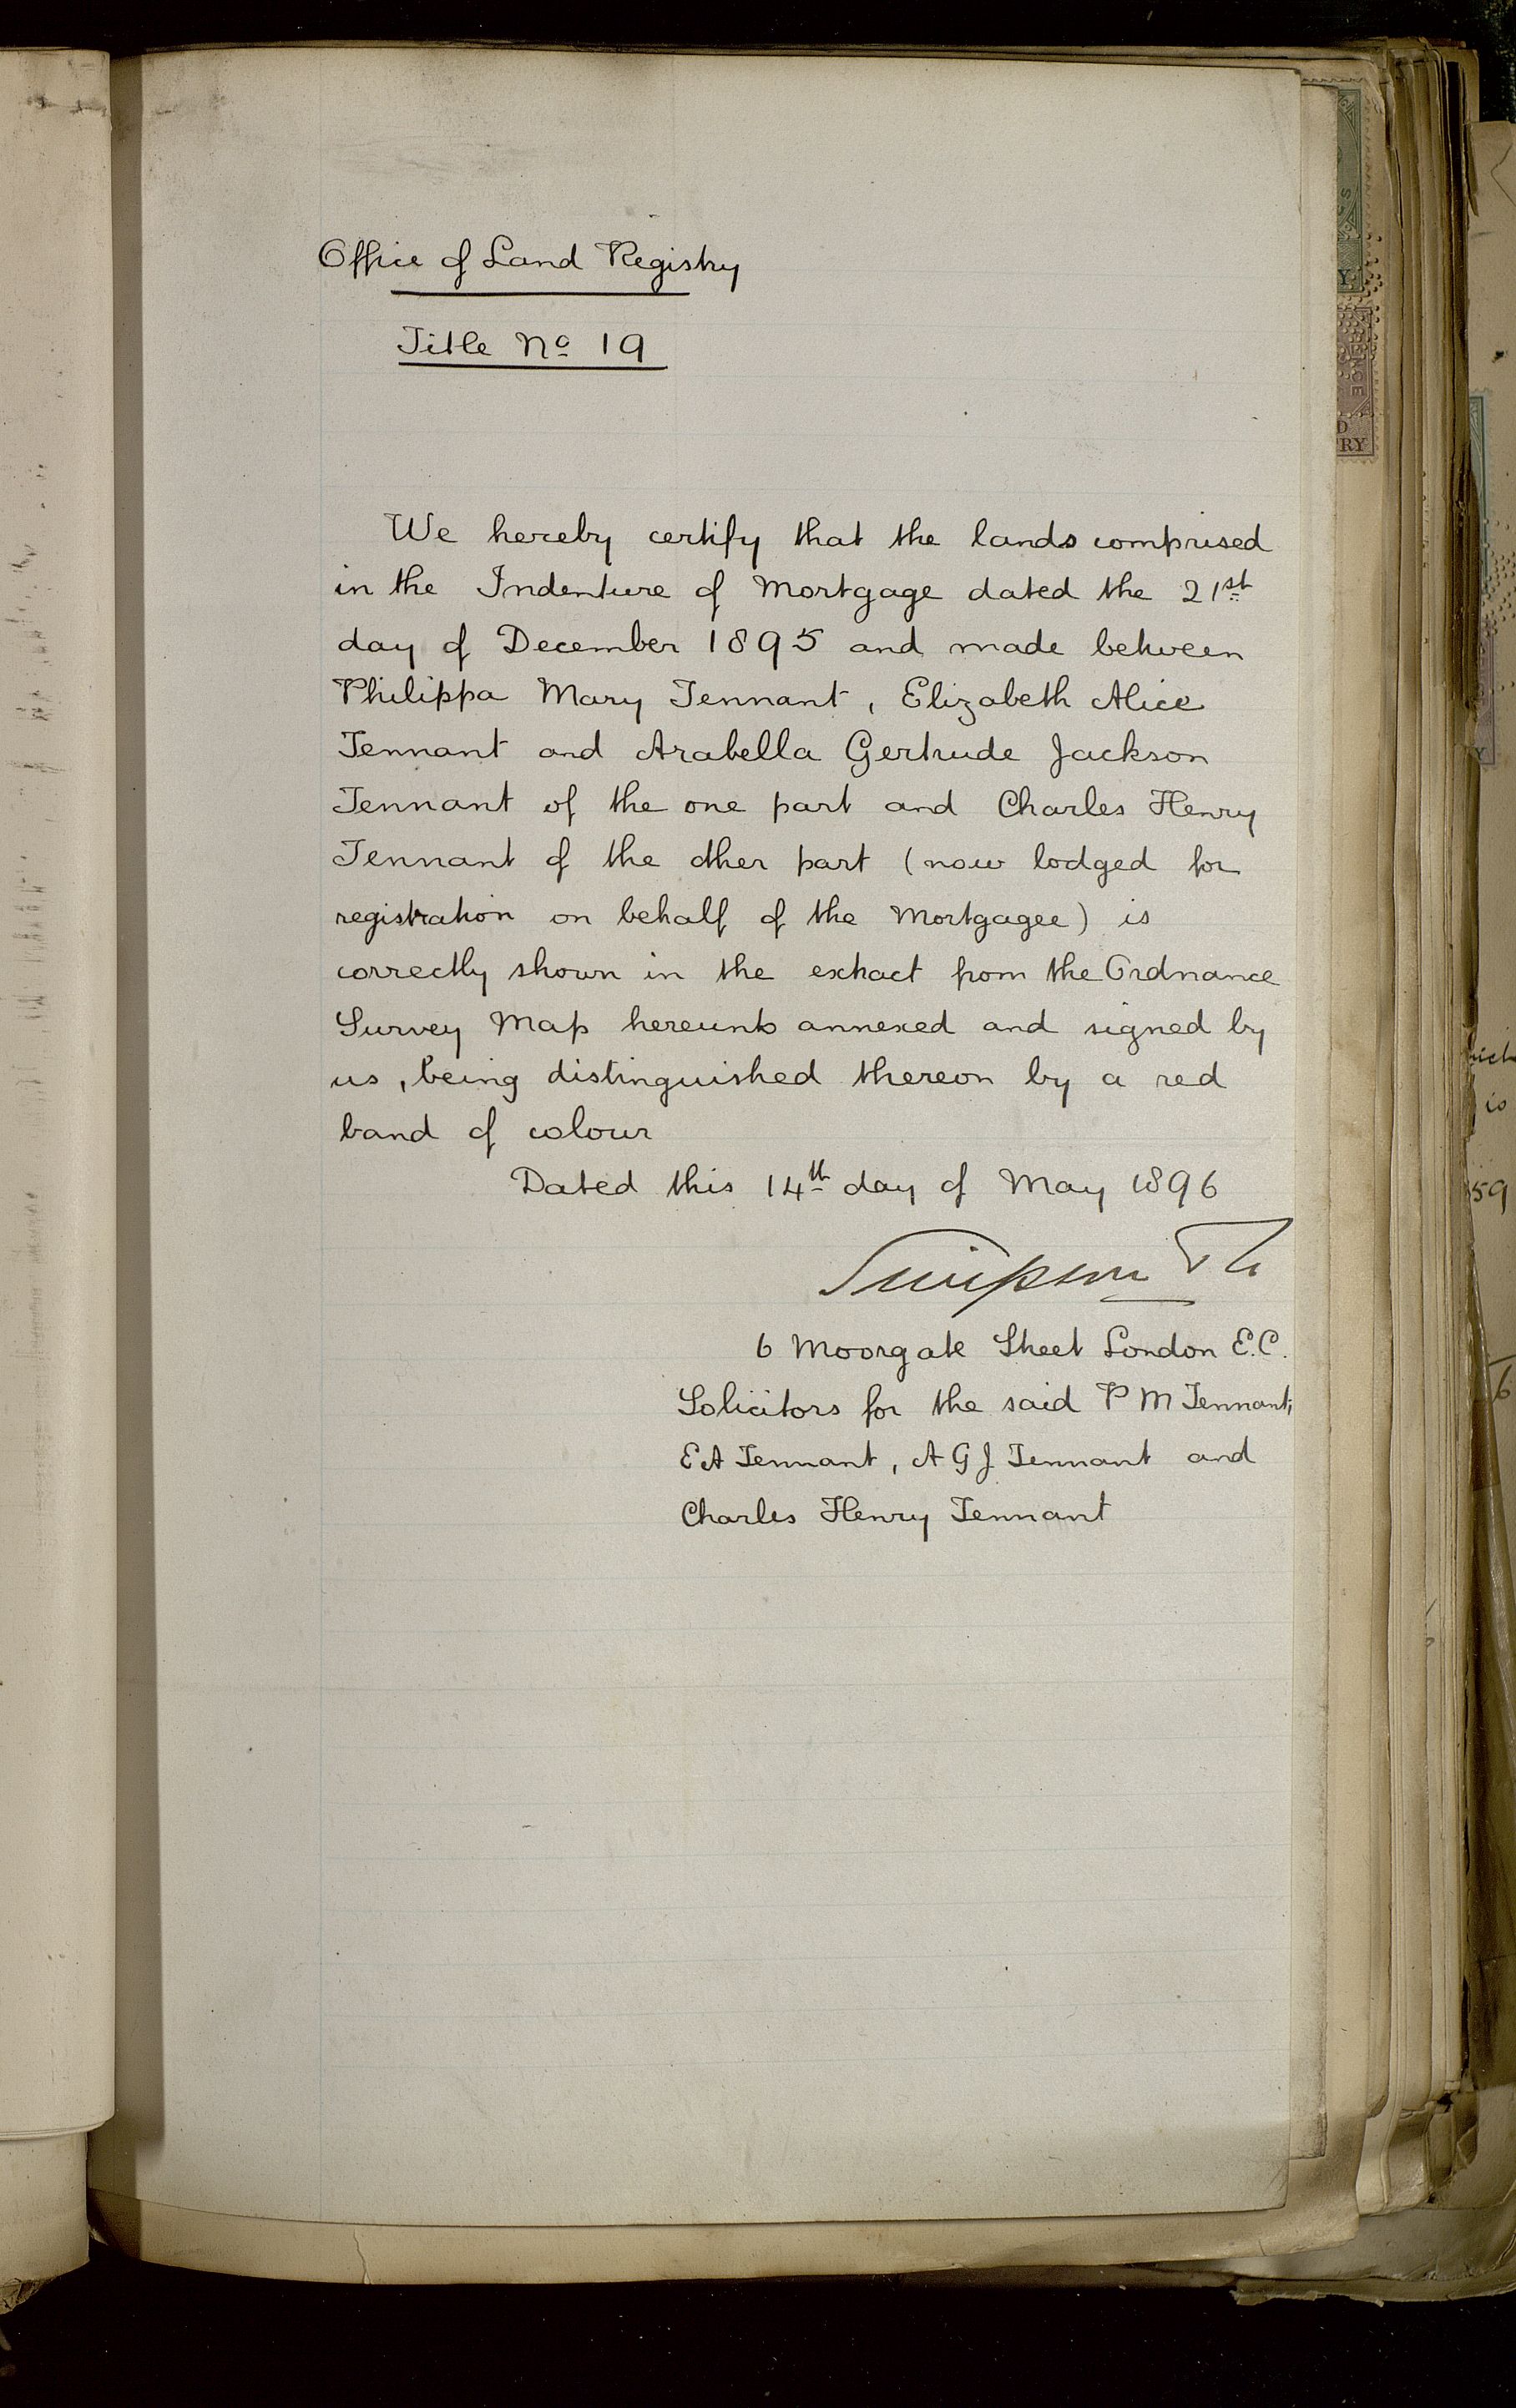 Office of Land Registry
Title No 19
We hereby certify that the lands comprised
in the Indenture of Mortgage dated the 21st
day of December 1895 and made between
Philippa Mary Tennant, Elizabeth Alice
Tennant and Arabella Gertrude Jackson
Tennant of the one part and Charles Henry
Tennant of the other part (now lodged for
registration on behalf of the Mortgagee) is
correctly shown in the extract from the Ordnance
Survey Map hereunto annexed and signed by
us, being distinguished thereon by a red
band of colour
Dated this 14th day of May 1896
Simpson
6 Moorgate Street London E.C.
Solicitors for the said P M Tennant,
E A Tennant, A G J Tennant and
Charles Henry Tennant
RY
is
59